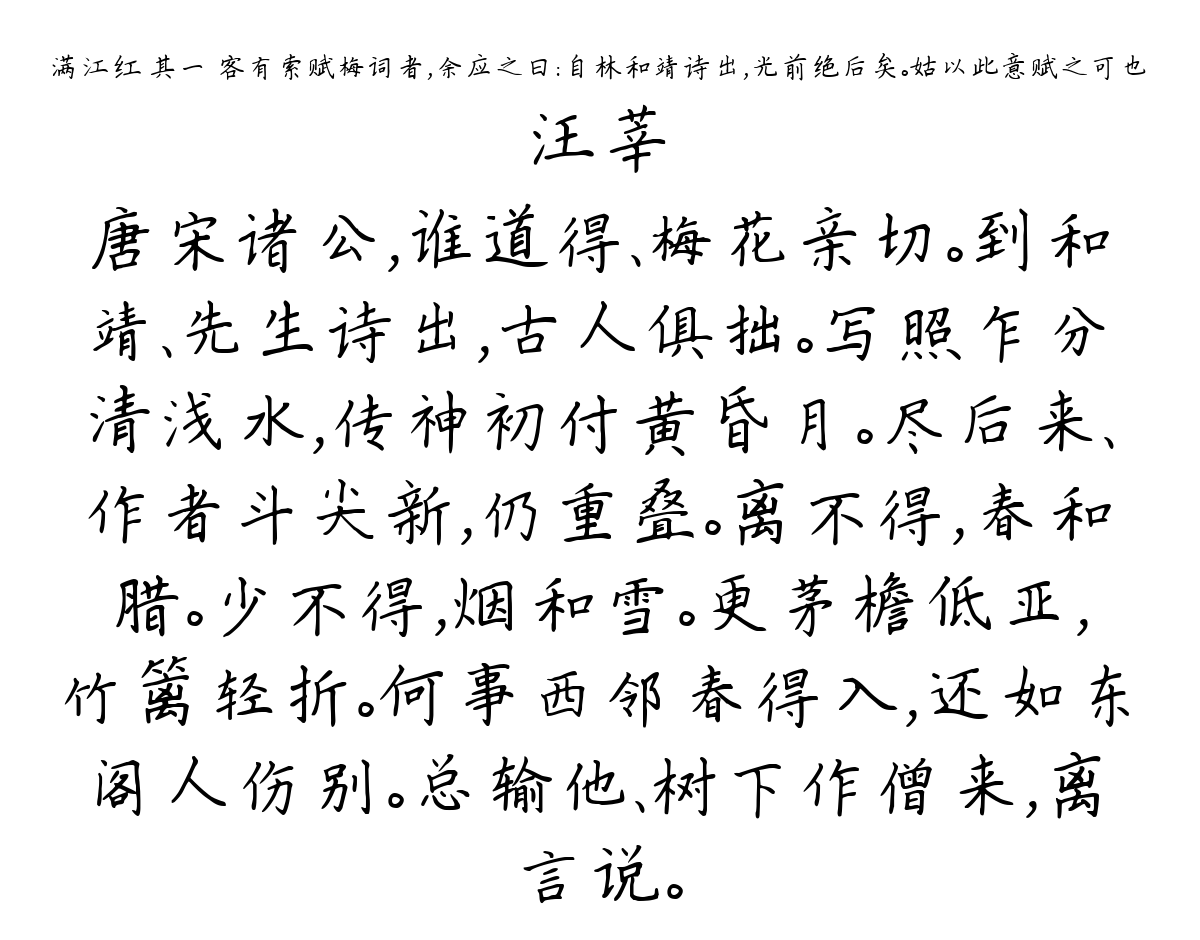 满江红 其一 客有索赋梅词者,余应之曰:自林和靖诗出,光前绝后矣。姑以此意赋之可也
汪莘
唐宋诸公,谁道得、梅花亲切。到和
靖、先生诗出,古人俱拙。写照乍分
清浅水,传神初付黄昏月。尽后来、
作者斗尖新,仍重叠。离不得,春和
腊。少不得,烟和雪。更茅檐低亚,
竹篱轻折。何事西邻春得入,还如东
阁人伤别。总输他、树下作僧来,离
言说。